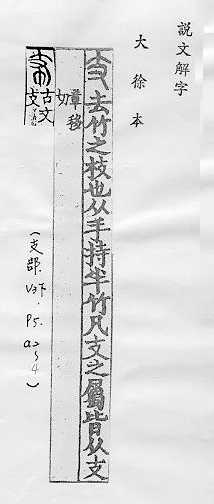 説文解字
大徐本
支去竹之枝也从手持半竹凡支之屬皆从支
章移
切
古文
支
(支部. V3下. P5. a3~4)